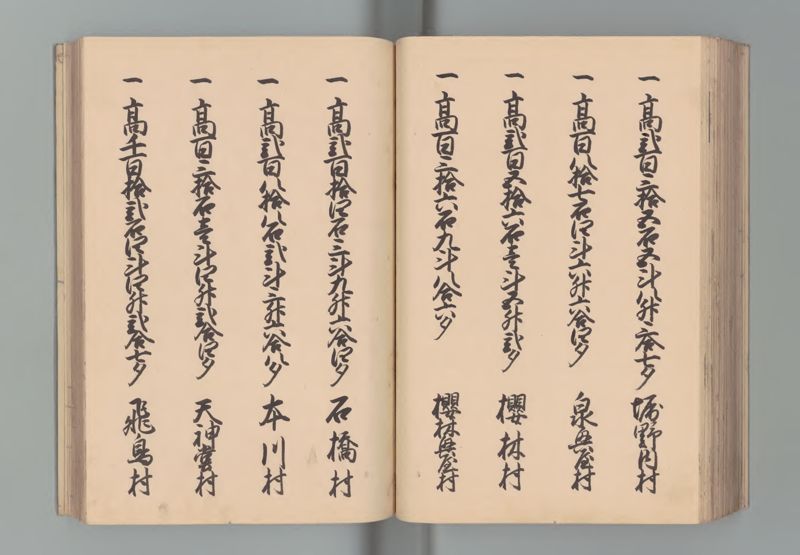 一高弐百三拾五石五斗八升三合七夕 堀野内村
一高百八拾七石四斗六升六合四夕 泉興屋村
一高弐百五拾六石壱斗五升弐夕 櫻林村
一高百三拾六石九斗八合六夕 櫻林興屋村
一高弐百拾四石三斗九升六合四夕 石橋村
一高弐百八拾八石弐斗三升六合八夕 本川村
一高百三拾石壱斗四升弐合四夕 天神堂村
一高千百拾弐石四斗四升弐合七夕 飛鳥村